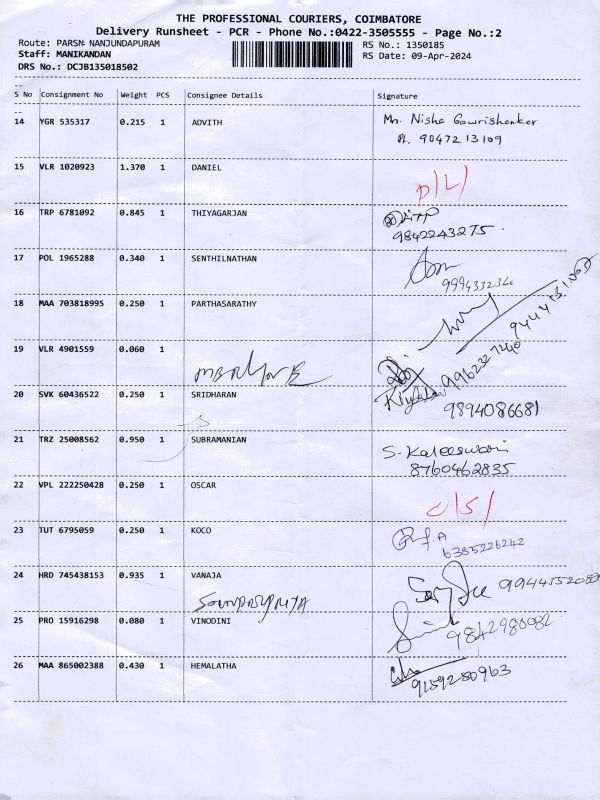 THE PROFESSIONAL COURIERS, COIMBATORE
Delivery Runsheet - PCR - Phone No.:0422-3505555 - Page No.:2
Route: PARSN NANJUNDAPURAM RS No.: 1350185
Staff: MANIKANDAN RS Date: 09-Apr-2024
DRS No.: DCJB135018502
S No Consignment No Weight PCS Consignee Details Signature
14 YGR 535317 0.215 1 ADVITH Mr. Nisha Gowrishanker
Ph. 90472 13109
15 VLR 1020923 1.370 1 DANIEL D/L/
16 TRP 6781092 0.845 1 THIYAGARJAN
9842243275
17 POL 1965288 0.340 1 SENTHILNATHAN
999433234
18 MAA 703818995 0.250 1 PARTHASARATHY
19 VLR 4901559 0.060 1
9962327240
20 SVK 60436522 0.250 1 SRIDHARAN
9894086681
21 TRZ 25008562 0.950 1 SUBRAMANIAN S. Kaleeswari
8760462835
22 VPL 222250428 0.250 1 OSCAR C/S/
23 TUT 6795059 0.250 1 KOCO
6385226242
24 HRD 745438153 0.935 1 VANAJA
SOUNDARYRIYA
25 PRO 15916298 0.080 1 VINODINI
9842980082
26 MAA 865002388 0.430 1 HEMALATHA
9159280963